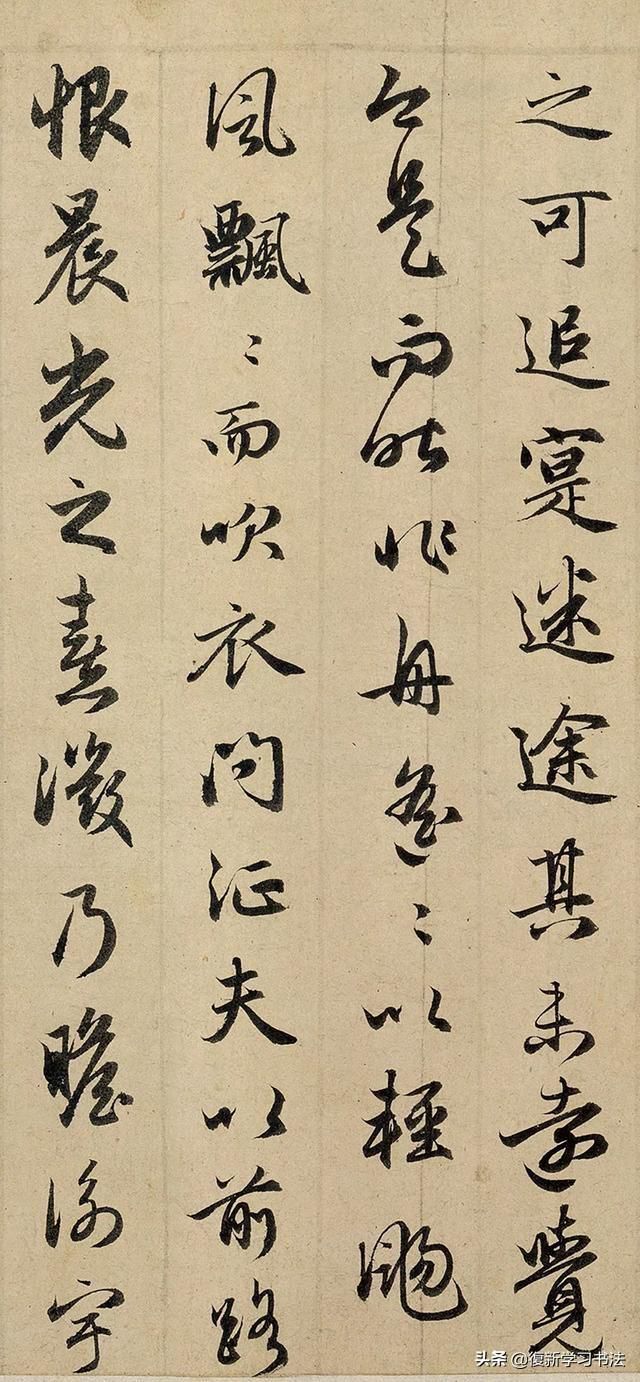 之可追寔迷途其未遠覺
今是而昨非舟遙〻以輕颺
風飄〻而吹衣問征夫以前路
恨晨光之熹微乃瞻衡宇
头条 @復新学习书法